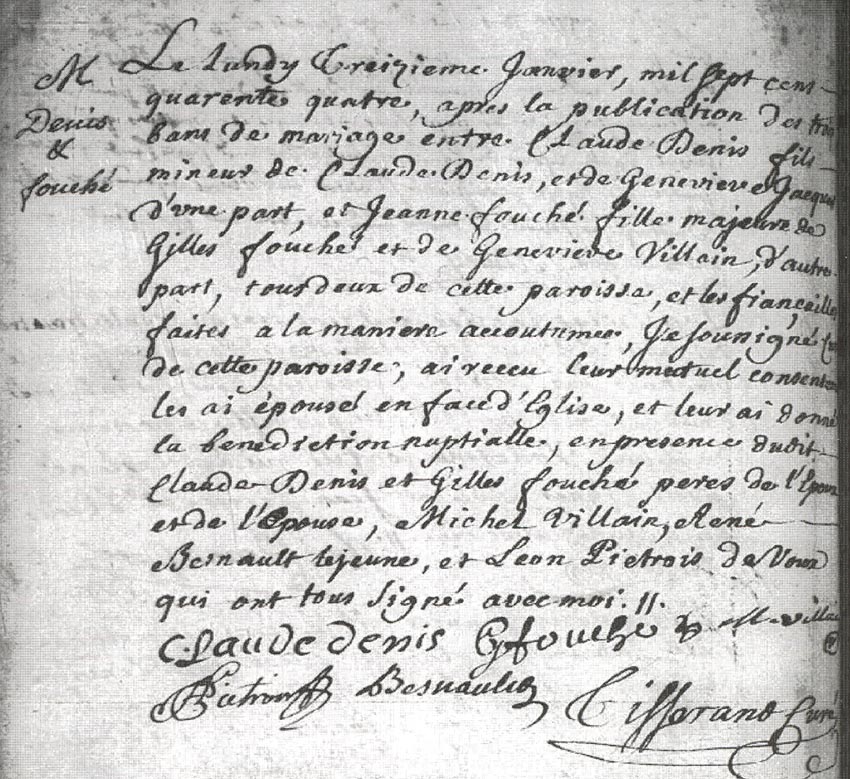 M
Denis
&
fouché
Le lundy treizieme Janvier, mil sept cens
quarente quatre, apres la publication des trois
bans de mariage entre Claude Denis fils
mineur de Claude Denis, et de Genevieve Jacquet
d'une part, et Jeanne fouché fille majeure de
Gilles fouché et de Genevieve Villain, d'autre
part, tous deux de cette paroisse, et les fiançailles
faites a la maniere accoutumee, Je sousigné
de cette paroisse, ai receu leur mutuel
les ai épousé en face d'Eglise, et leur ai donné
la benediction nuptialle, en presence dudit
Claude Denis et Gilles fouché peres de l'Epoux
et de l'Epouse, Michel Villain, René
Besnault lejeune, et Leon Pietrois de
qui ont tous signé avec moi.//.
Claude denis G fouche M villain
Besnault
Tisserand Curé